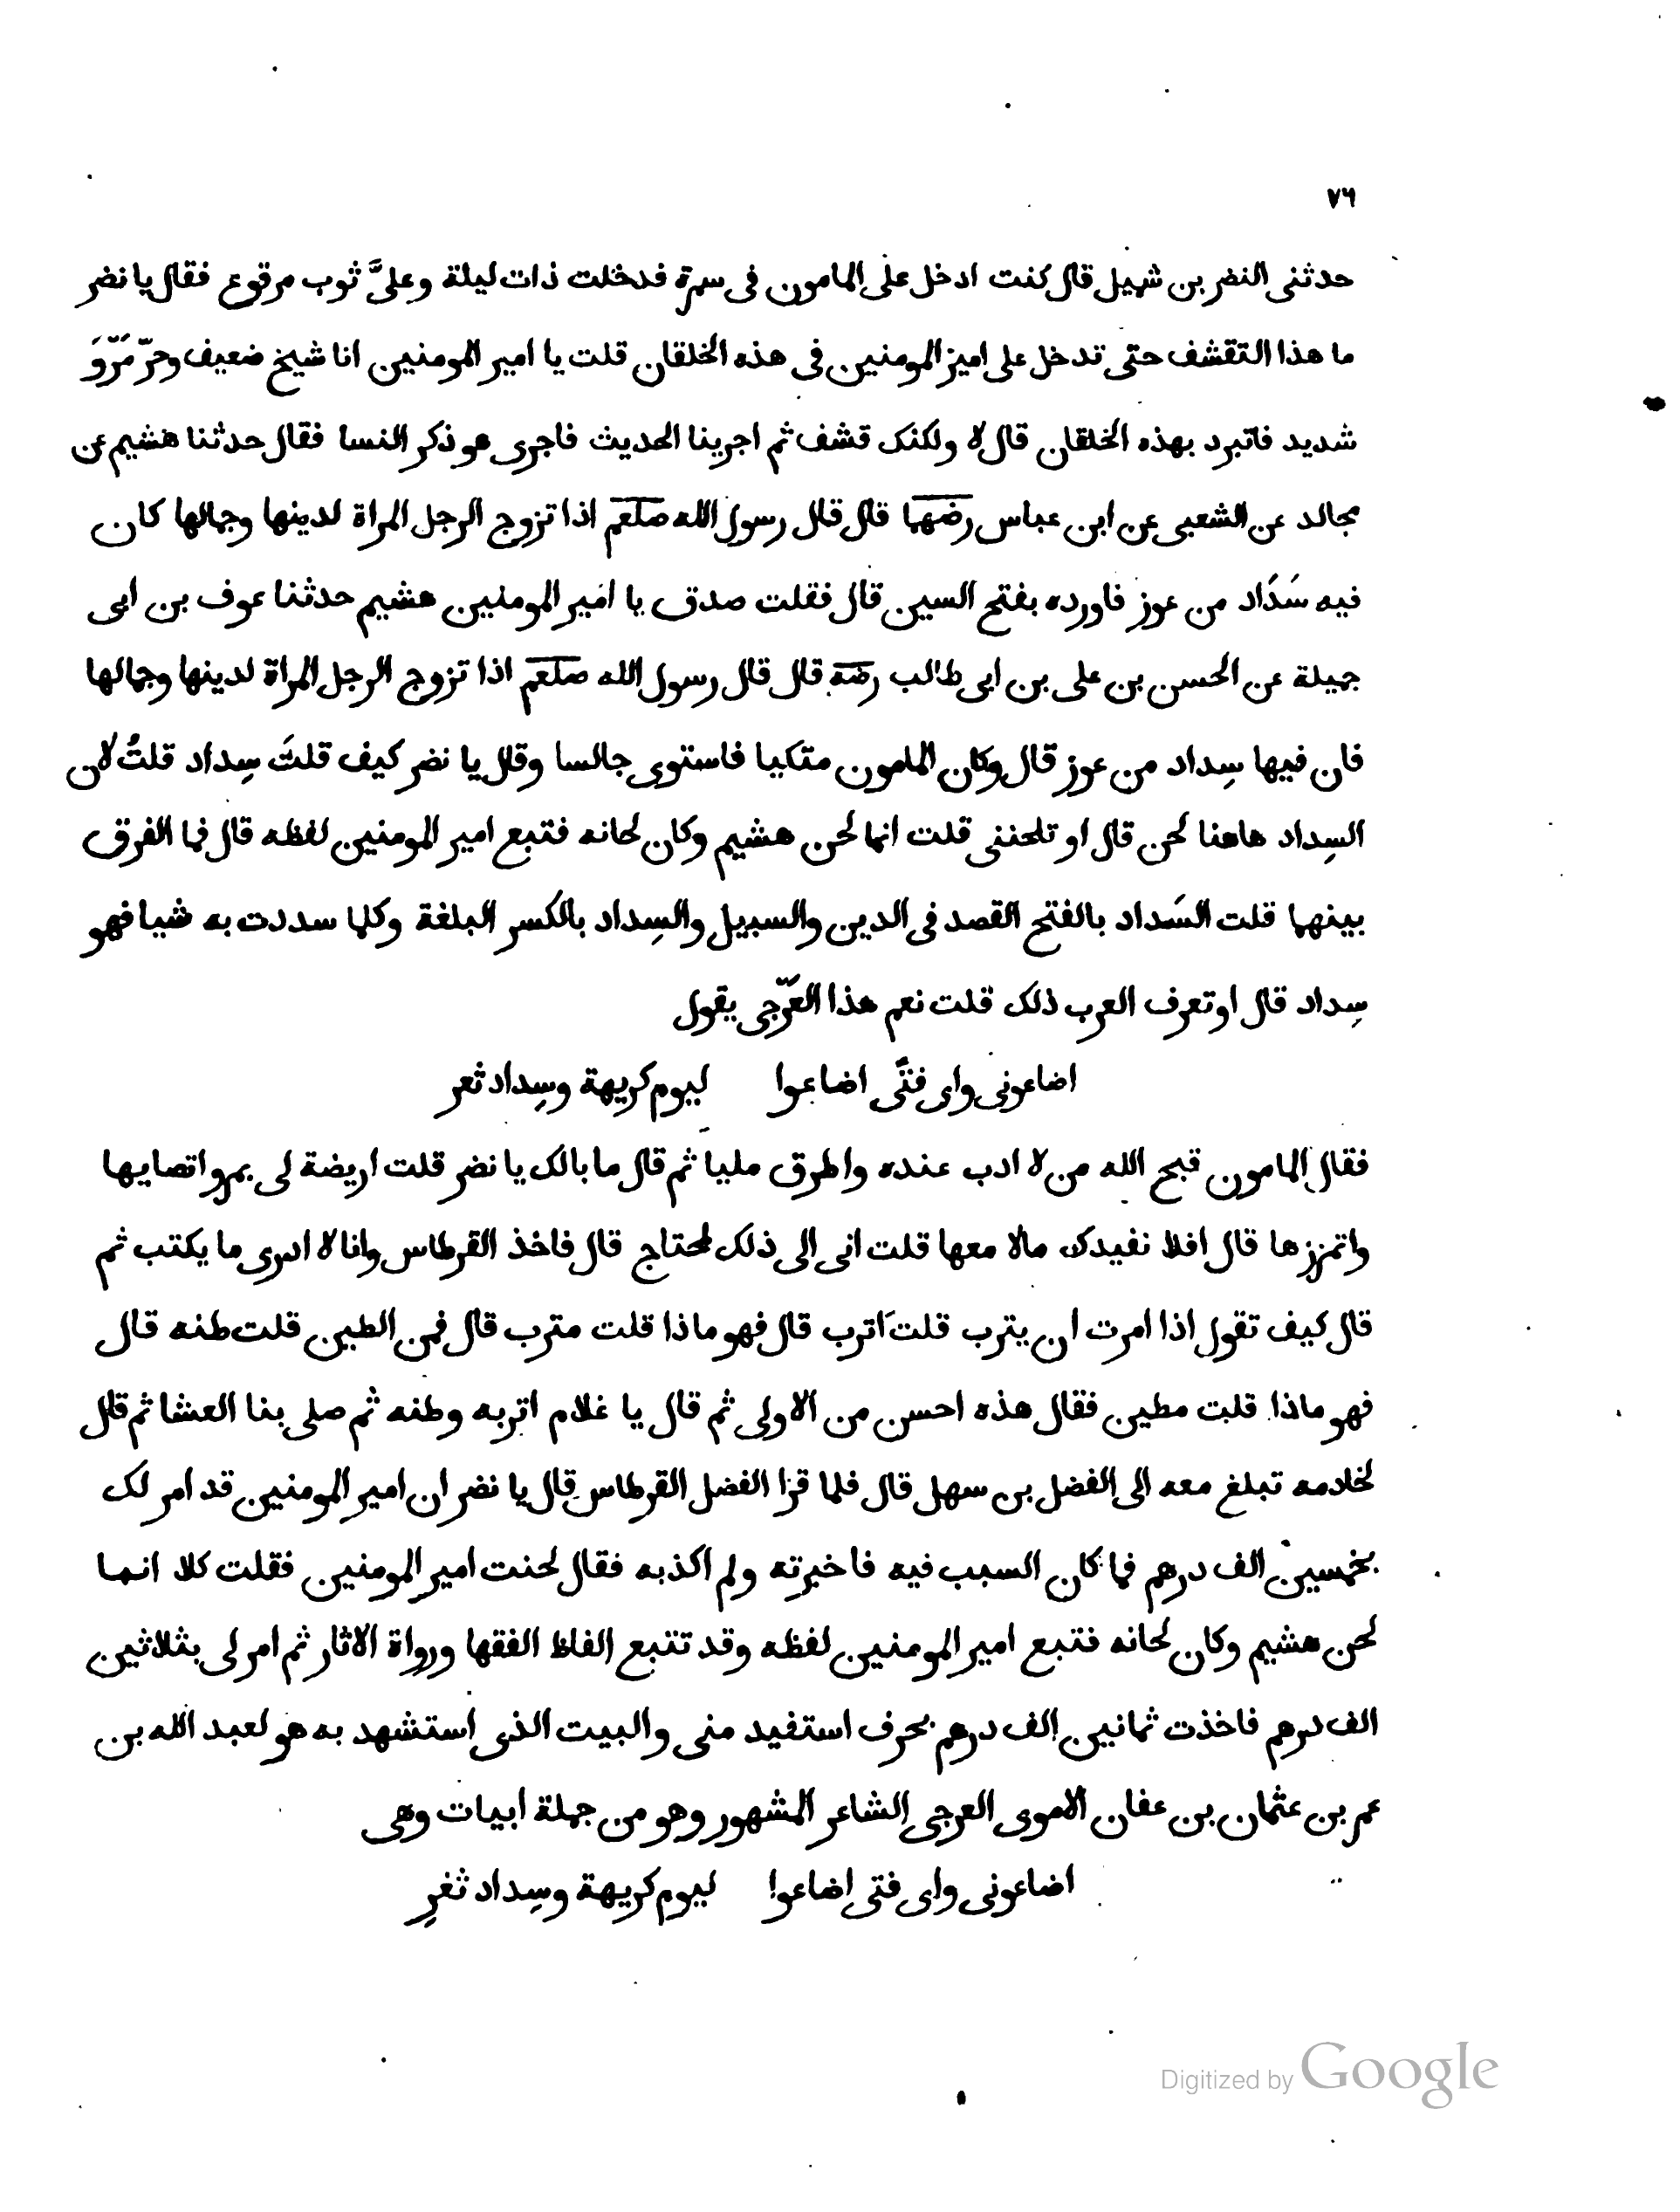 ٧٦
حدثنى النضر بن شميل قال كنت ادخل على المامون فى سمرة فدخلت ذات ليلة وعلىَّ ثوب مرقوع فقال يا نضر
ما هذا التقشف حتى تدخل على امير المومنين فى هذه الخلقان قلت يا امير المومنين انا شيخ ضعيف وحرّ مَرْوَ
شديد فاتبرد بهذه الخلقان قال لا ولكنك قشف ثم اجرينا الحديث فاجرى هو ذكر النسا فقال حدثنا هشيم عن
مجالد عن الشعبى عن ابن عباس رضهما قال قال رسول الله صلعم اذا تزوج الرجل المراة لدينها وجمالها كان
فيه سَدَاد من عوز فاورده بفتح السين قال فقلت صدق يا امير المومنين هشيم حدثنا عوف بن ابى
جميلة عن الحسن بن على بن ابى طالب رضه قال قال رسول الله صلعم اذا تزوج الرجل المراة لدينها وجمالها
فان فيها سِداد من عوز قال وكان المامون متكيا فاستوى جالسا وقال يا نضر كيف قلتَ سِداد قلتُ لان
السِداد هاهنا لحن قال او تلحننى قلت انما لحن هشيم وكان لحانه فتبع امير المومنين لفظه قال فما الفرق
بينهما قلت السَداد بالفتح القصد فى الدين والسبيل والسِداد بالكسر البلغة وكلما سددت به شيا فهو
سِداد قال اوتعرف العرب ذلك قلت نعم هذا العَرْجى يقول
اضاعونى واى فتًى اضاعوا ليوم كريهة وسِداد ثعر
فقال المامون قبح الله من لا ادب عنده واطرق مليا ثم قال ما بالك يا نضر قلت اريضة لى بمرو اتصابها
واتمززها قال افلا نفيدك مالا معها قلت انى الى ذلك لمحتاج قال فاخذ القرطاس وانا لا ادرى ما يكتب ثم
قال كيف تقول اذا امرت ان يترب قلت اترب قال فهو ماذا قلت مترب قال فمن الطين قلت طنه قال
فهو ماذا قلت مطين فقال هذه احسن من الاولى ثم قال يا غلام اتربه وطنه ثم صلى بنا العشا ثم قال
لخادمه تبلغ معه الى الفضل بن سهل قال فلما قرا الفضل القرطاس قال يا نضر ان امير المومنين قد امر لك
بخمسين الف درهم فما كان السبب فيه فاخبرته ولم اكذبه فقال لحنت امير المومنين فقلت كلا انما
لحن هشيم وكان لحانه فتبع امير المومنين لفظه وقد تتبع الفاظ الفقها ورواة الاثار ثم امر لى بثلاثين
الف درهم فاخذت ثمانين الف درهم بحرف استفيد منى والبيت الذى استشهد به هو لعبد الله بن
عمر بن عثمان بن عفان الاموى العرجى الشاعر المشهور وهو من جملة ابيات وهى
اضاعونى واى فتى اضاعوا ليوم كريهة وسِداد ثغرِ
Digitized by Google